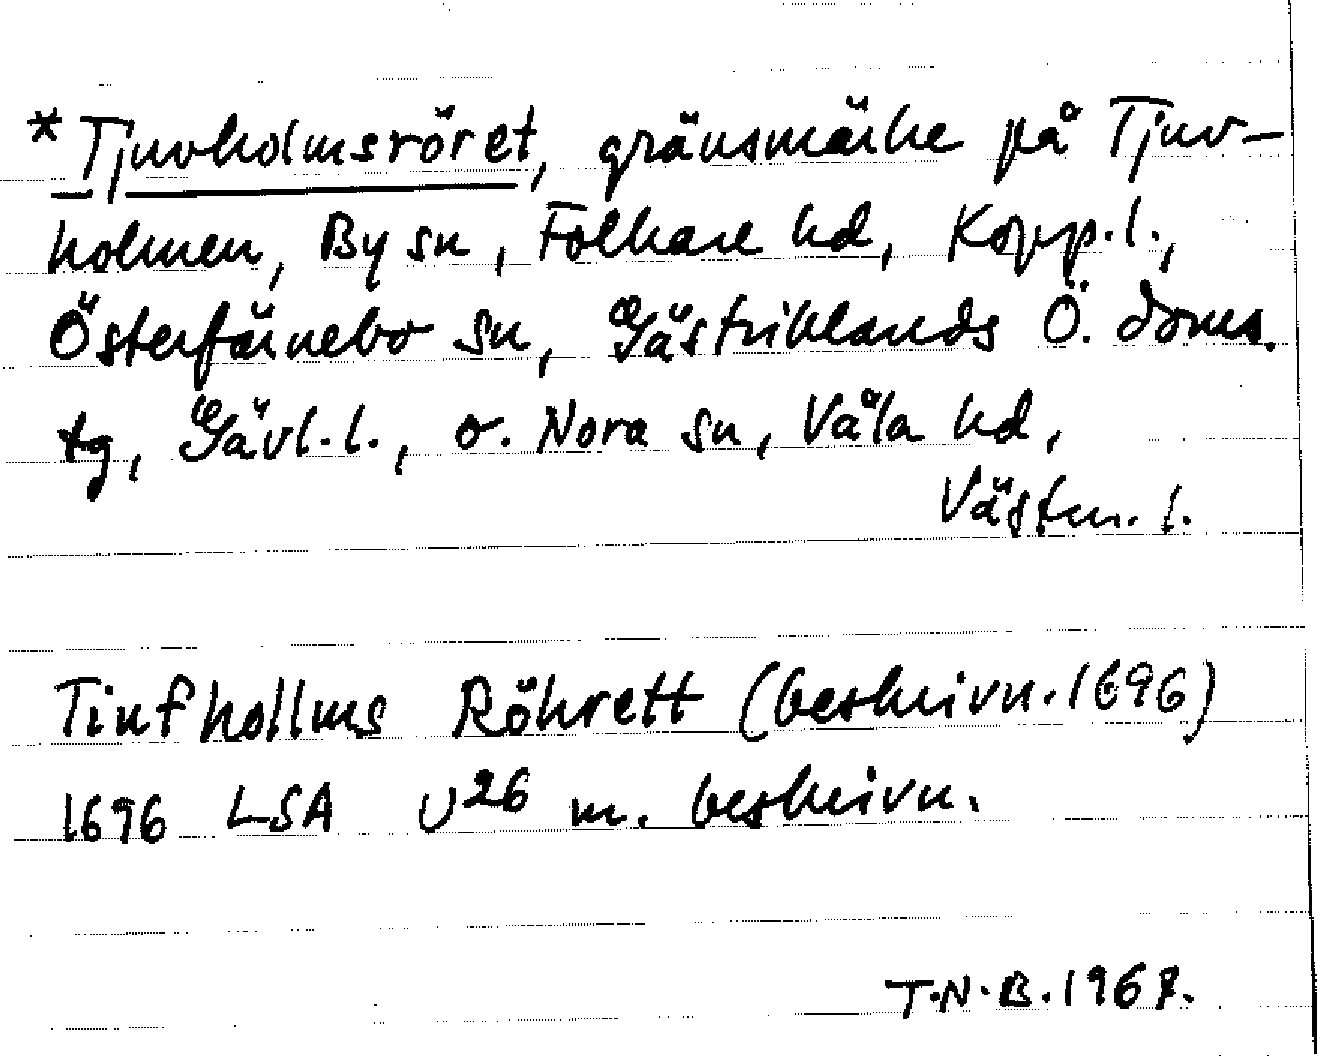 *Tjuvholmsröret, gränsmärke på Tjuv-
holmen, By sn, Folkare hd, Kopp.l.,
Österfärnebo sn, Gästriklands Ö. doms.
tg, Gävl.l., o. Nora sn, Våla hd,
Västm. l.
Tiufhollms Röhrett (beskrivn. 1696)
1696 LSA U26 m. beskrivn.
T.N.B. 1967.